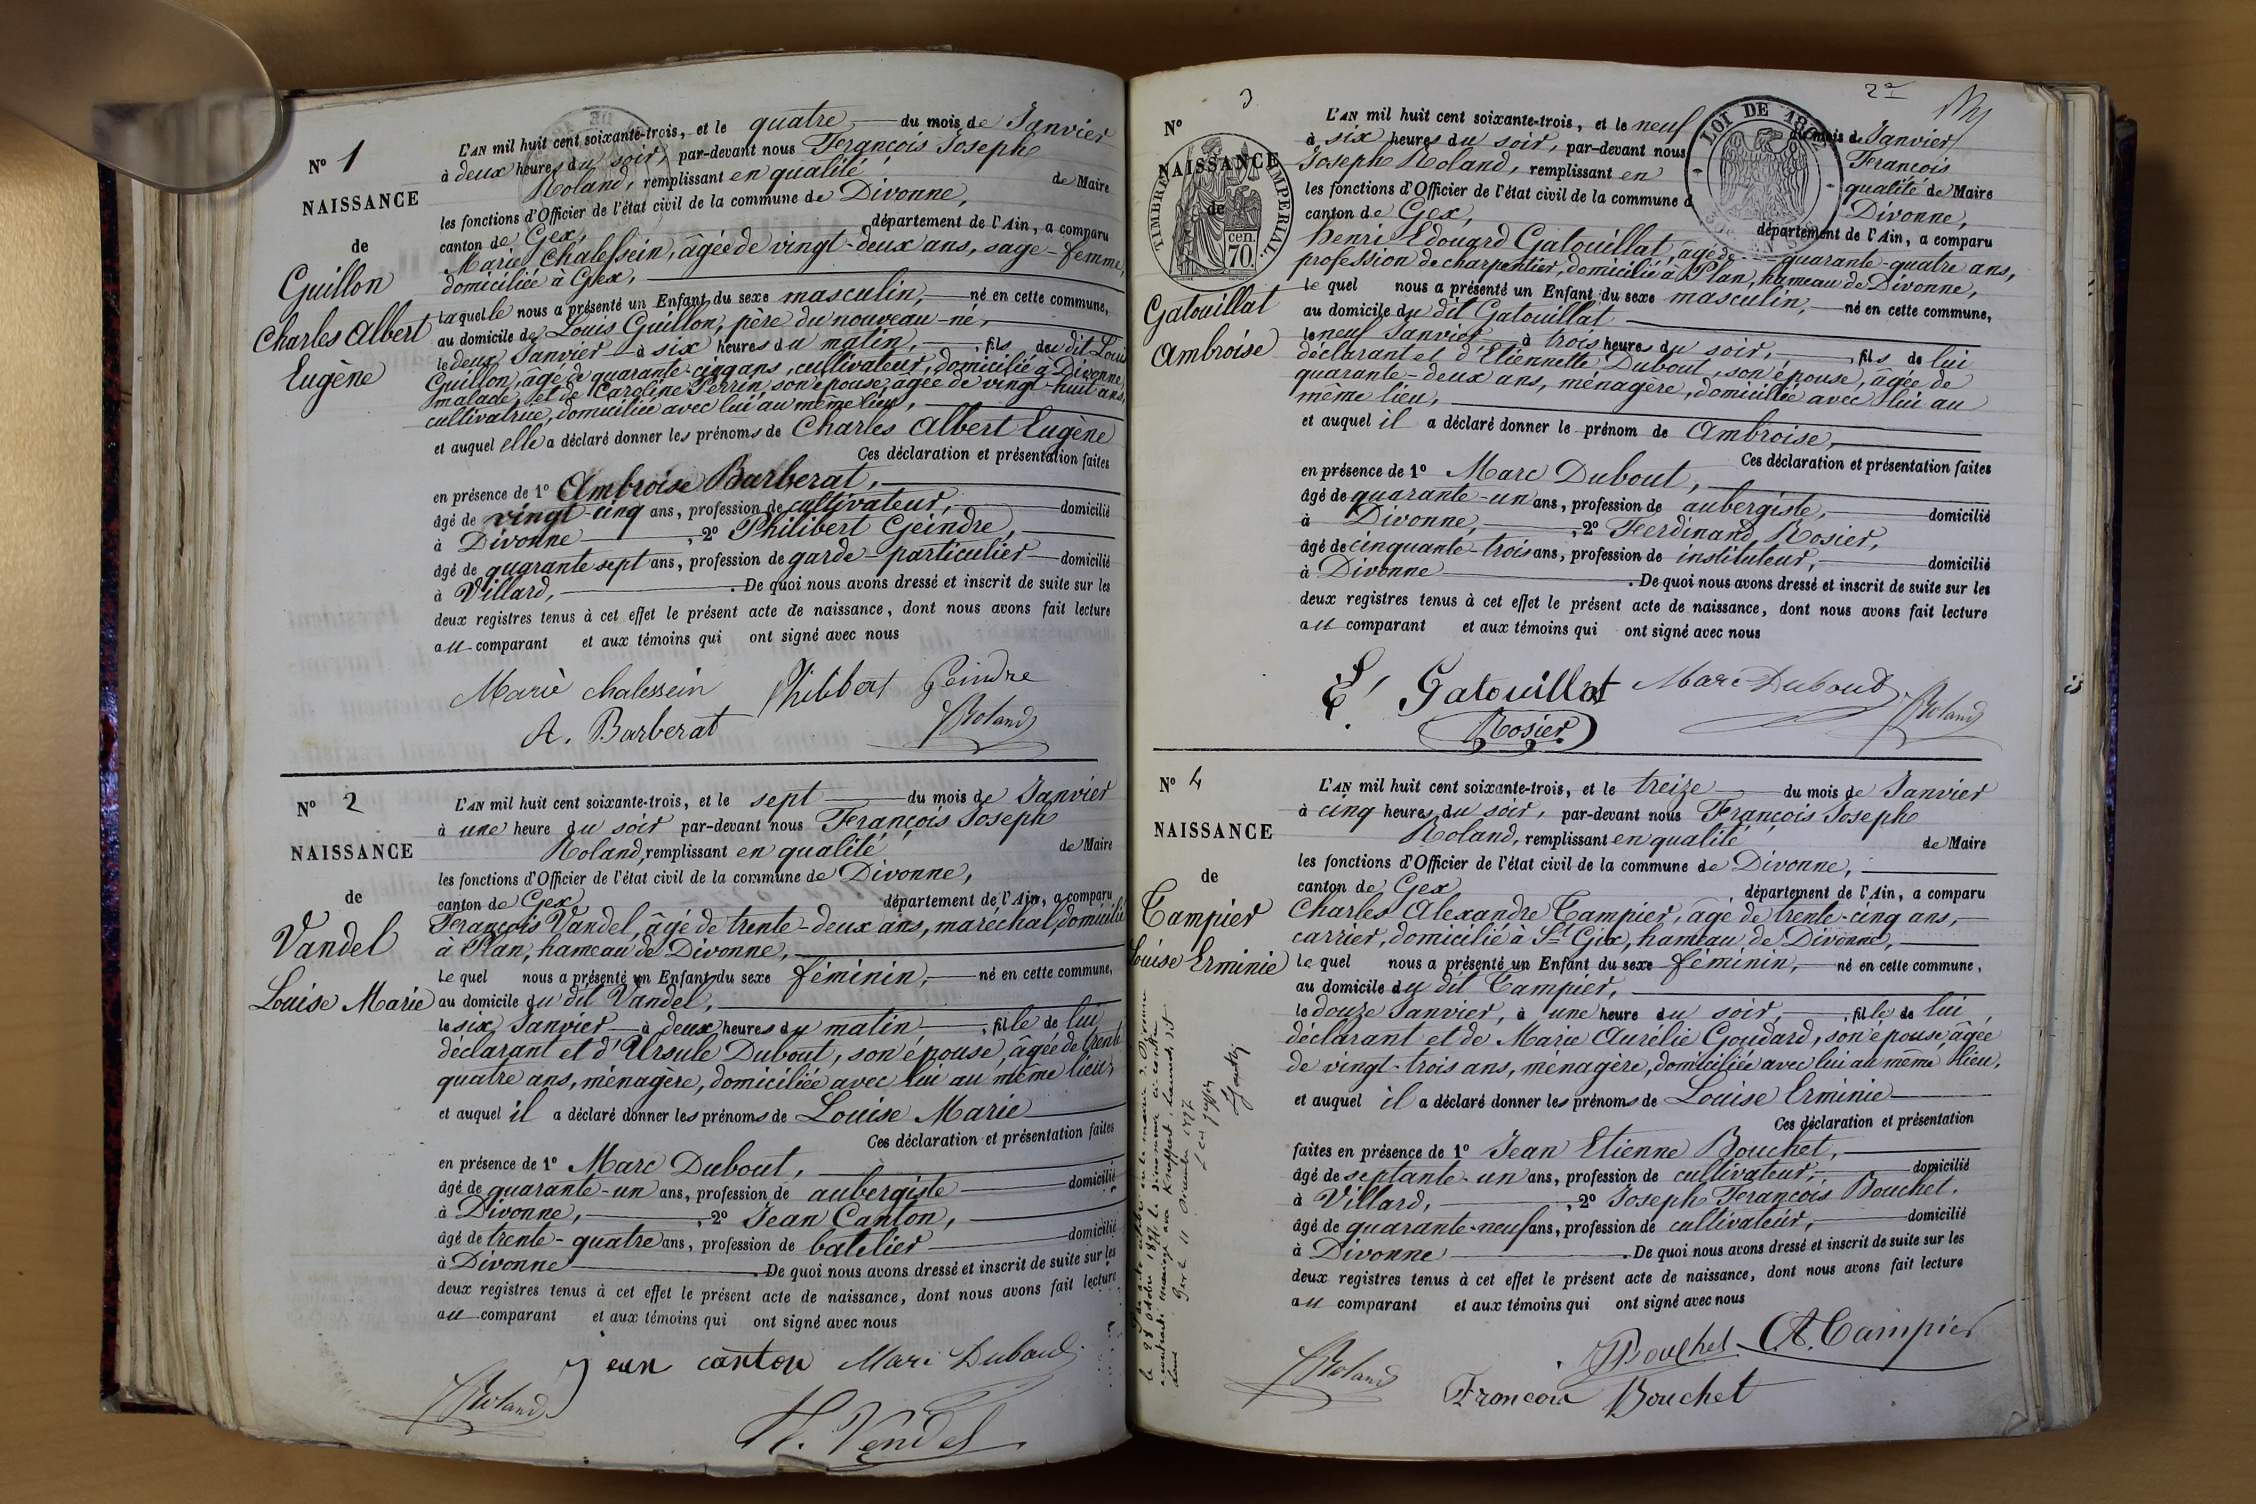 N° 1
NAISSANCE
de
Guillon
Charles Albert
Eugène
L'AN mil huit cent soixante-trois, et le quatre du mois de Janvier
à deux heures du soir, par-devant nous François Joseph
Roland, remplissant en qualité de Maire
les fonctions d'Officier de l'état civil de la commune de Divonne,
canton de Gex, département de l'Ain, a comparu
Marie Chalessein, âgée de vingt-deux ans, sage-femme,
domiciliée à Gex,
Laquelle nous a présenté un Enfant du sexe masculin, né en cette commune,
au domicile de Louis Guillon, père du nouveau-né,
le deux Janvier à six heures du matin, fils du dit Louis
Guillon, âgé de quarante-cinq ans, cultivateur, domicilié à Divonne,
malade, et de Caroline Perrin, son épouse, âgée de vingt-huit ans,
cultivatrice, domiciliée avec lui au même lieu,
et auquel elle a déclaré donner les prénoms de Charles Albert Eugène
Ces déclaration et présentation faites
en présence de 1° Ambroise Barberat,
âgé de vingt-cinq ans, profession de cultivateur, domicilié
à Divonne, 2° Philibert Geindre,
âgé de quarante sept ans, profession de garde-particulier domicilié
à Villard, . De quoi nous avons dressé et inscrit de suite sur les
deux registres tenus à cet effet le présent acte de naissance, dont nous avons fait lecture
au comparant et aux témoins qui ont signé avec nous
Marie chalessein Philibert Geindre
A. Barberat JRoland
N° 2
NAISSANCE
de
Vandel
Louise Marie
L'AN mil huit cent soixante-trois, et le sept du mois de Janvier
à une heure du soir par-devant nous François Joseph
Roland, remplissant en qualité de Maire
les fonctions d'Officier de l'état civil de la commune de Divonne,
canton de Gex, département de l'Ain, a comparu
François Vandel, âgé de trente-deux ans, maréchal, domicilié
à Plan, hameau de Divonne,
Le quel nous a présenté un Enfant du sexe féminin, né en cette commune,
au domicile du dit Vandel,
le six Janvier à deux heures du matin, fille de lui
déclarant et d'Ursule Dubout, son épouse, âgée de trente
quatre ans, ménagère, domiciliée avec lui au même lieu,
et auquel il a déclaré donner les prénoms de Louise Marie
Ces déclaration et présentation faites
en présence de 1° Marc Dubout,
âgé de quarante-un ans, profession de aubergiste domicilié
à Divonne, 2° Jean Canton,
âgé de trente-quatre ans, profession de batelier domicilié
à Divonne . De quoi nous avons dressé et inscrit de suite sur les
deux registres tenus à cet effet le présent acte de naissance, dont nous avons fait lecture
au comparant et aux témoins qui ont signé avec nous
Jean canton Marc Duboud
JRoland
Vendel
3
2e
N°
NAISSANCE
de
TIMBRE IMPERIAL
70 cen.
LOI DE 1862
Gatouillat
Ambroise
L'AN mil huit cent soixante-trois, et le neuf du mois de Janvier
à six heures du soir, par-devant nous François
Joseph Roland, remplissant en qualité de Maire
les fonctions d'Officier de l'état civil de la commune de Divonne,
canton de Gex, département de l'Ain, a comparu
Henri Edouard Gatouillat, âgé de quarante-quatre ans,
profession de charpentier, domicilié à Plan, hameau de Divonne,
Le quel nous a présenté un Enfant du sexe masculin, né en cette commune,
au domicile du dit Gatouillat
le neuf Janvier à trois heures du soir, fils de lui
déclarant et d'Etiennette Dubout, son épouse, âgée de
quarante-deux ans, ménagère, domiciliée avec lui au
même lieu,
et auquel il a déclaré donner le prénom de Ambroise,
Ces déclaration et présentation faites
en présence de 1° Marc Dubout,
âgé de quarante-un ans, profession de aubergiste, domicilié
à Divonne, 2° Ferdinand Rosier,
âgé de cinquante-trois ans, profession de instituteur, domicilié
à Divonne . De quoi nous avons dressé et inscrit de suite sur les
deux registres tenus à cet effet le présent acte de naissance, dont nous avons fait lecture
au comparant et aux témoins qui ont signé avec nous
Gatouillat Marc Duboud JRoland
Rosier
N° 4
NAISSANCE
de
Tampier
Louise Erminie
L'AN mil huit cent soixante-trois, et le treize du mois de Janvier
à cinq heures du soir, par-devant nous François Joseph
Roland, remplissant en qualité de Maire
les fonctions d'Officier de l'état civil de la commune de Divonne,
canton de Gex département de l'Ain, a comparu
Charles Alexandre Tampier, âgé de trente-cinq ans,
carrier, domicilié à St Gix, hameau de Divonne,
Le quel nous a présenté un Enfant du sexe féminin, né en cette commune,
au domicile du dit Tampier,
le douze Janvier, à une heure du soir, fille de lui
déclarant et de Marie Aurélie Goudard, son épouse, âgée
de vingt-trois ans, ménagère, domiciliée avec lui au même lieu,
et auquel il a déclaré donner les prénoms de Louise Erminie
Ces déclaration et présentation
faites en présence de 1° Jean Etienne Bouchet,
âgé de septante-un ans, profession de cultivateur, domicilié
à Villard, 2° Joseph François Bouchet,
âgé de quarante-neuf ans, profession de cultivateur, domicilié
à Divonne . De quoi nous avons dressé et inscrit de suite sur les
deux registres tenus à cet effet le présent acte de naissance, dont nous avons fait lecture
au comparant et aux témoins qui ont signé avec nous
JRoland Bouchet A. Tampier
Francois Bouchet